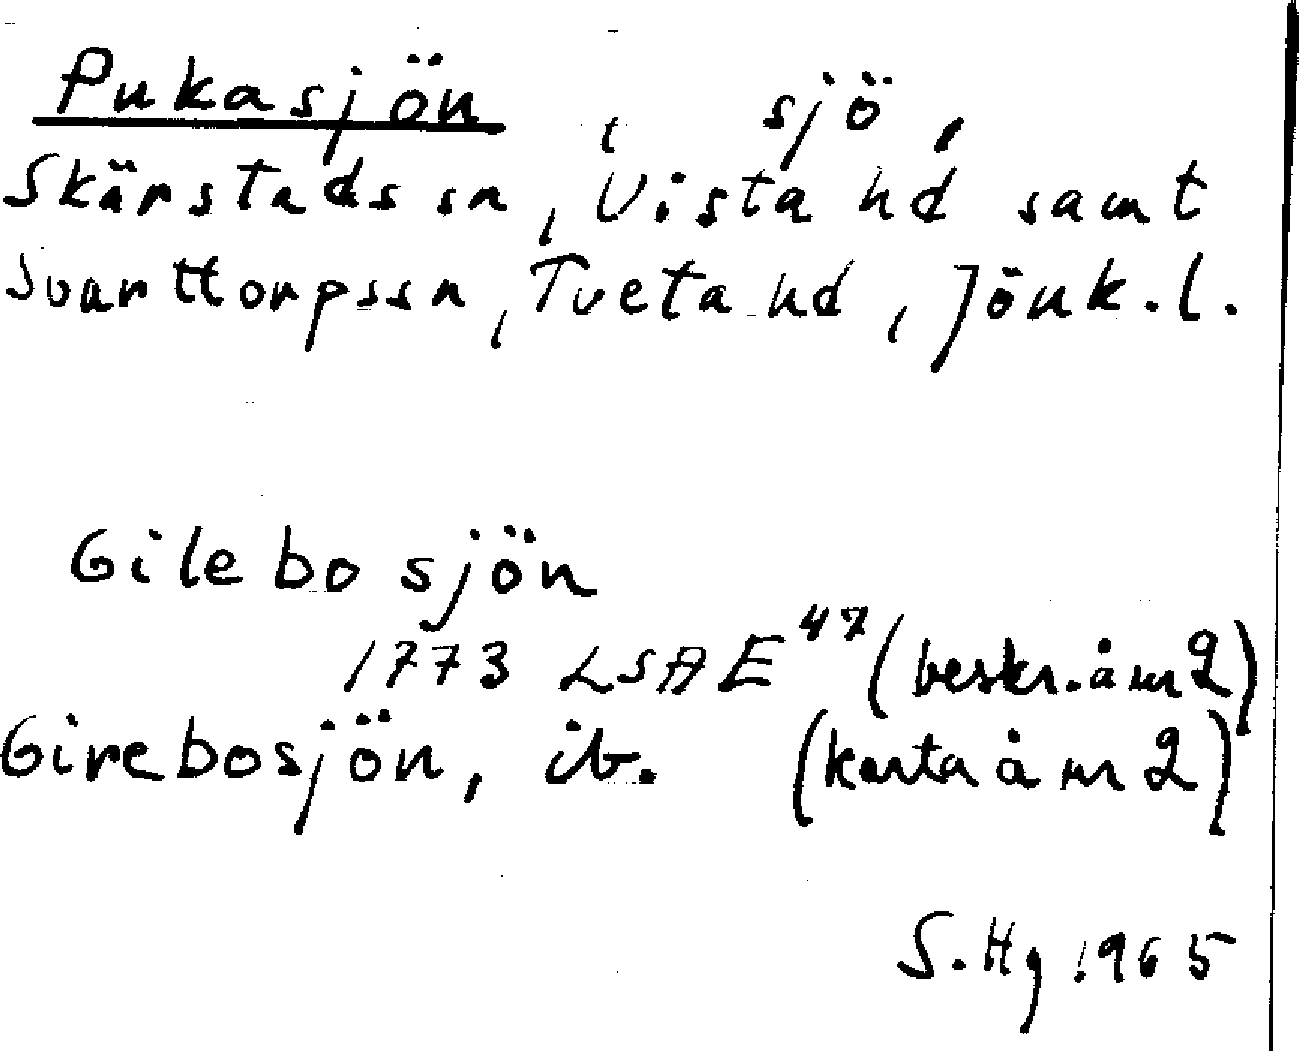 Pukasjön, sjö,
Skärstads sn, Vista hd samt
Svarttorps sn, Tveta hd, Jönk. l.
Gilebo sjön
1773 LSA E 47 (beskr. å nr 2)
Girebosjön, ib. (karta å nr 2)
S. Hg 1965